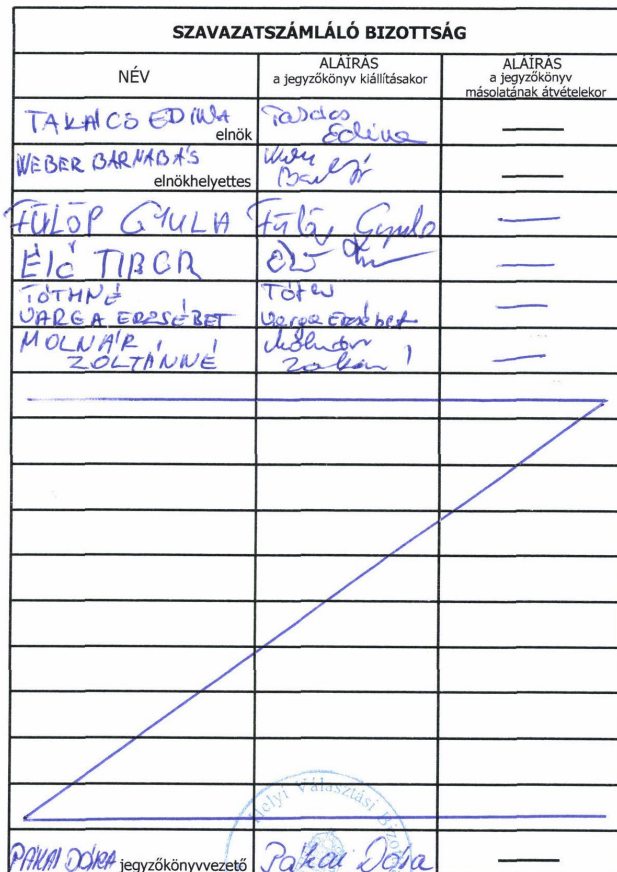 SZAVAZATSZÁMLÁLÓ BIZOTTSÁG
NÉV
ALÁÍRÁS
a jegyzőkönyv kiállításakor
ALÁÍRÁS
a jegyzőkönyv
másolatának átvételekor
TAKÁCS EDINA
elnök
Takács
Edina
WEBER BARNABÁS
elnökhelyettes
FÜLÖP GYULA
Fülöp Gyula
ÉLŐ TIBOR
Élő
TÓTHNÉ
VARGA ERZSÉBET
Varga Erzsébet
MOLNÁR
ZOLTÁNNÉ
Molnár
Helyi Választási
PÁKAI DÓRA jegyzőkönyvvezető
Pákai Dóra